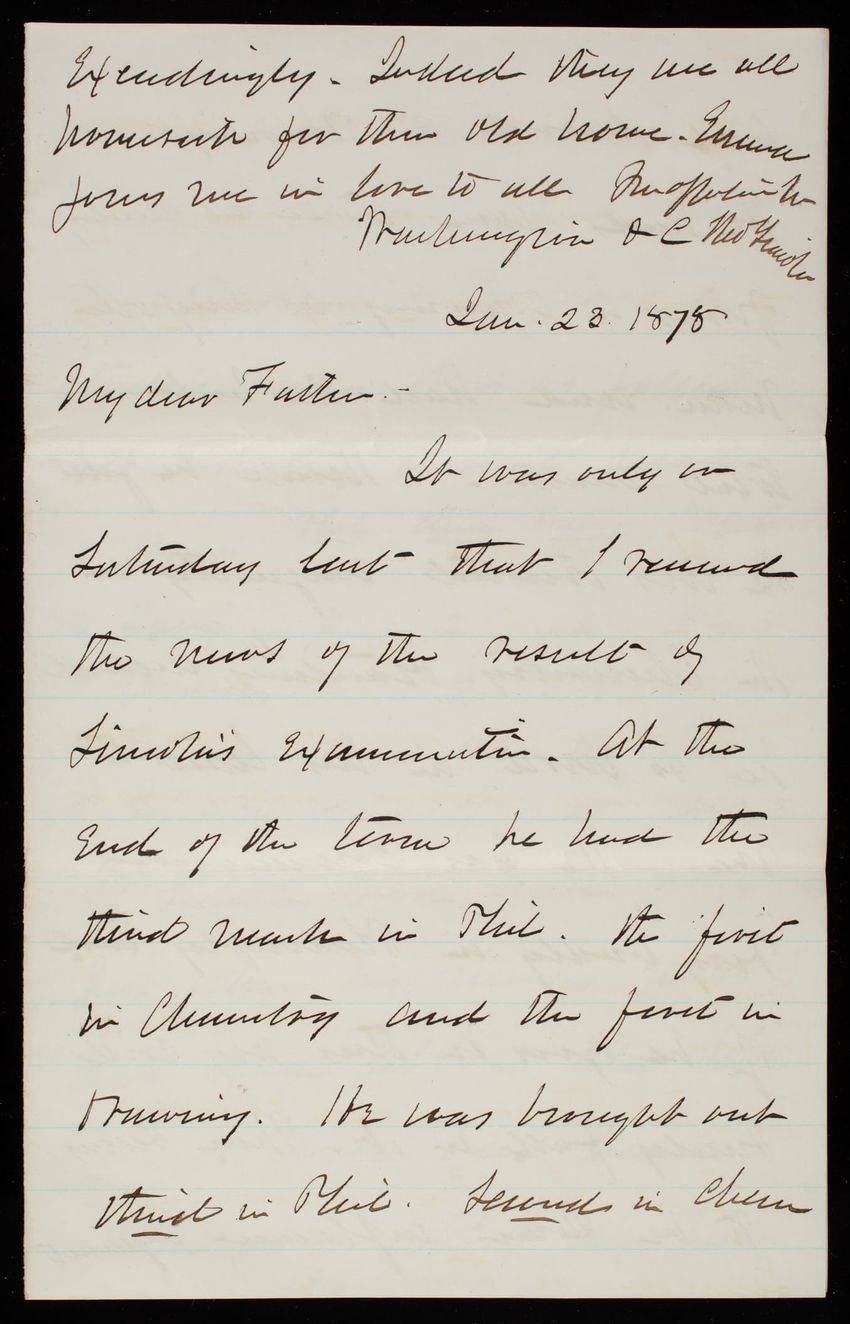 Exceedingly. Indeed they are all
homesick for their old home. Emma
joins me in love to all
Washington D C
Jan. 23. 1878
My dear Father. -
It was only on
Saturday last that I received
the news of the result of
Lincoln's Examination. At the
End of the term he had the
third mark in Phil. the first
in Chemistry and the first in
Drawing. He was brought out
third in Phil. Second in Chem